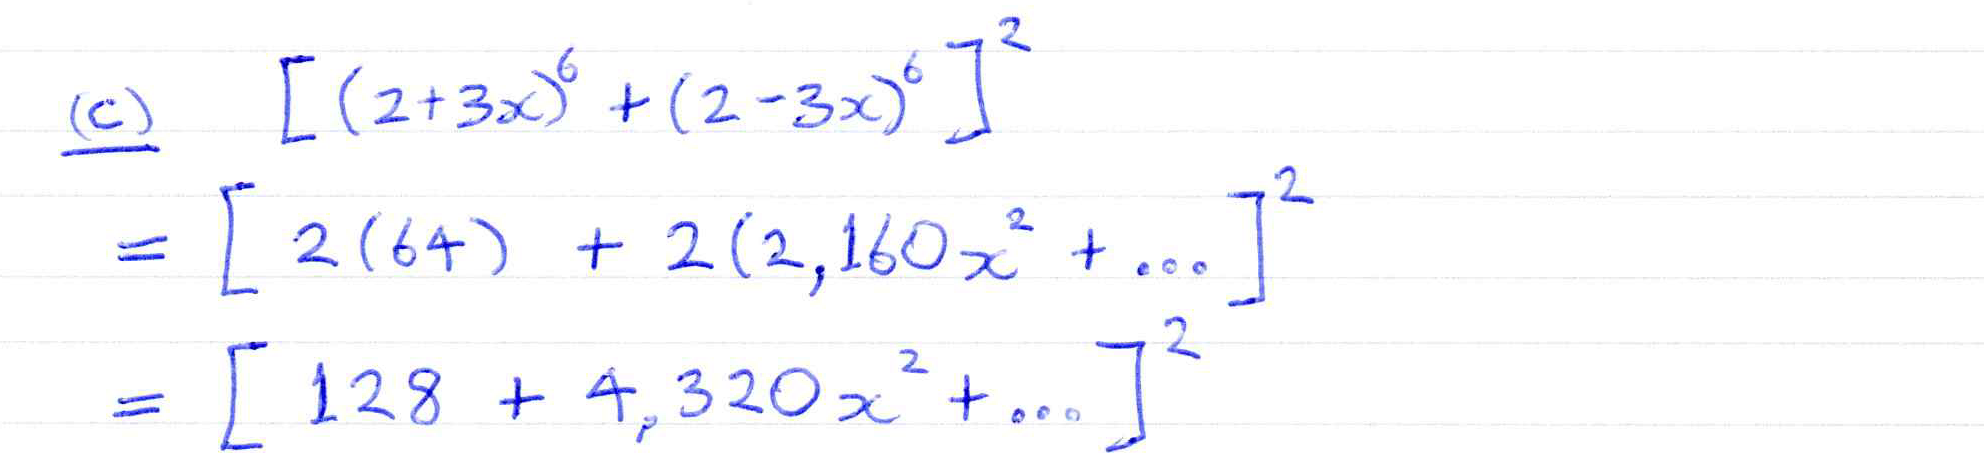 (c) [(2+3x)⁶ + (2-3x)⁶]²
= [2(64) + 2(2,160x² + ...]²
= [128 + 4,320x² + ...]²